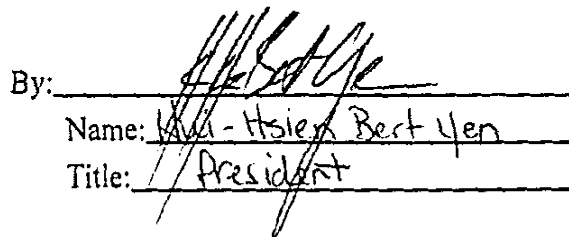 By:
Name: Hui-Hsien Bert Yen
Title: President